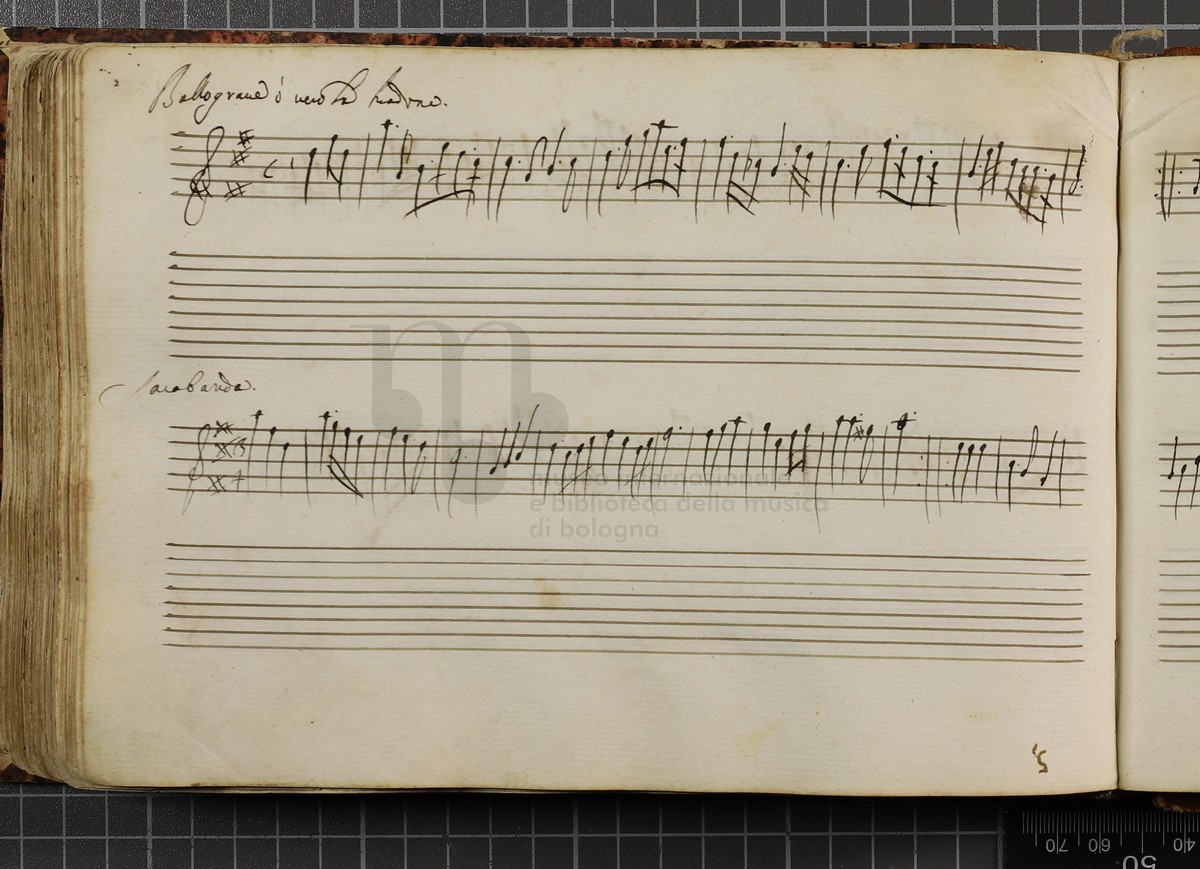 Ballo grave ò vero la
Sarabanda.
museo internazionale
e biblioteca della musica
di bologna
70 60 50 40